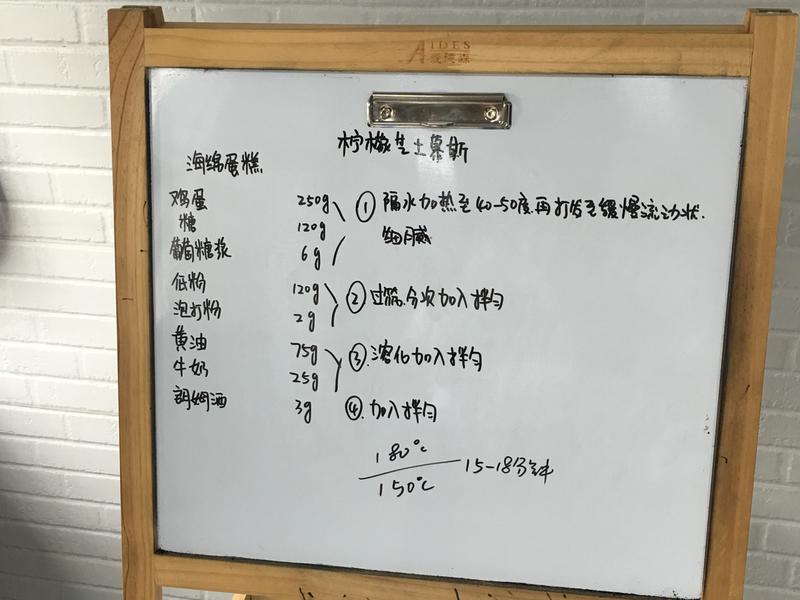 AIDES
爱德森
柠檬芝士慕斯
海绵蛋糕
鸡蛋 250g ① 隔水加热至40-50度再打发至缓慢流动状.
糖 120g 细腻
葡萄糖浆 6g
低粉 120g ② 过筛.分次加入拌匀
泡打粉 2g
黄油 75g ③.溶化加入拌匀
牛奶 25g
朗姆酒 3g ④.加入拌匀
180℃
150℃ 15-18分钟